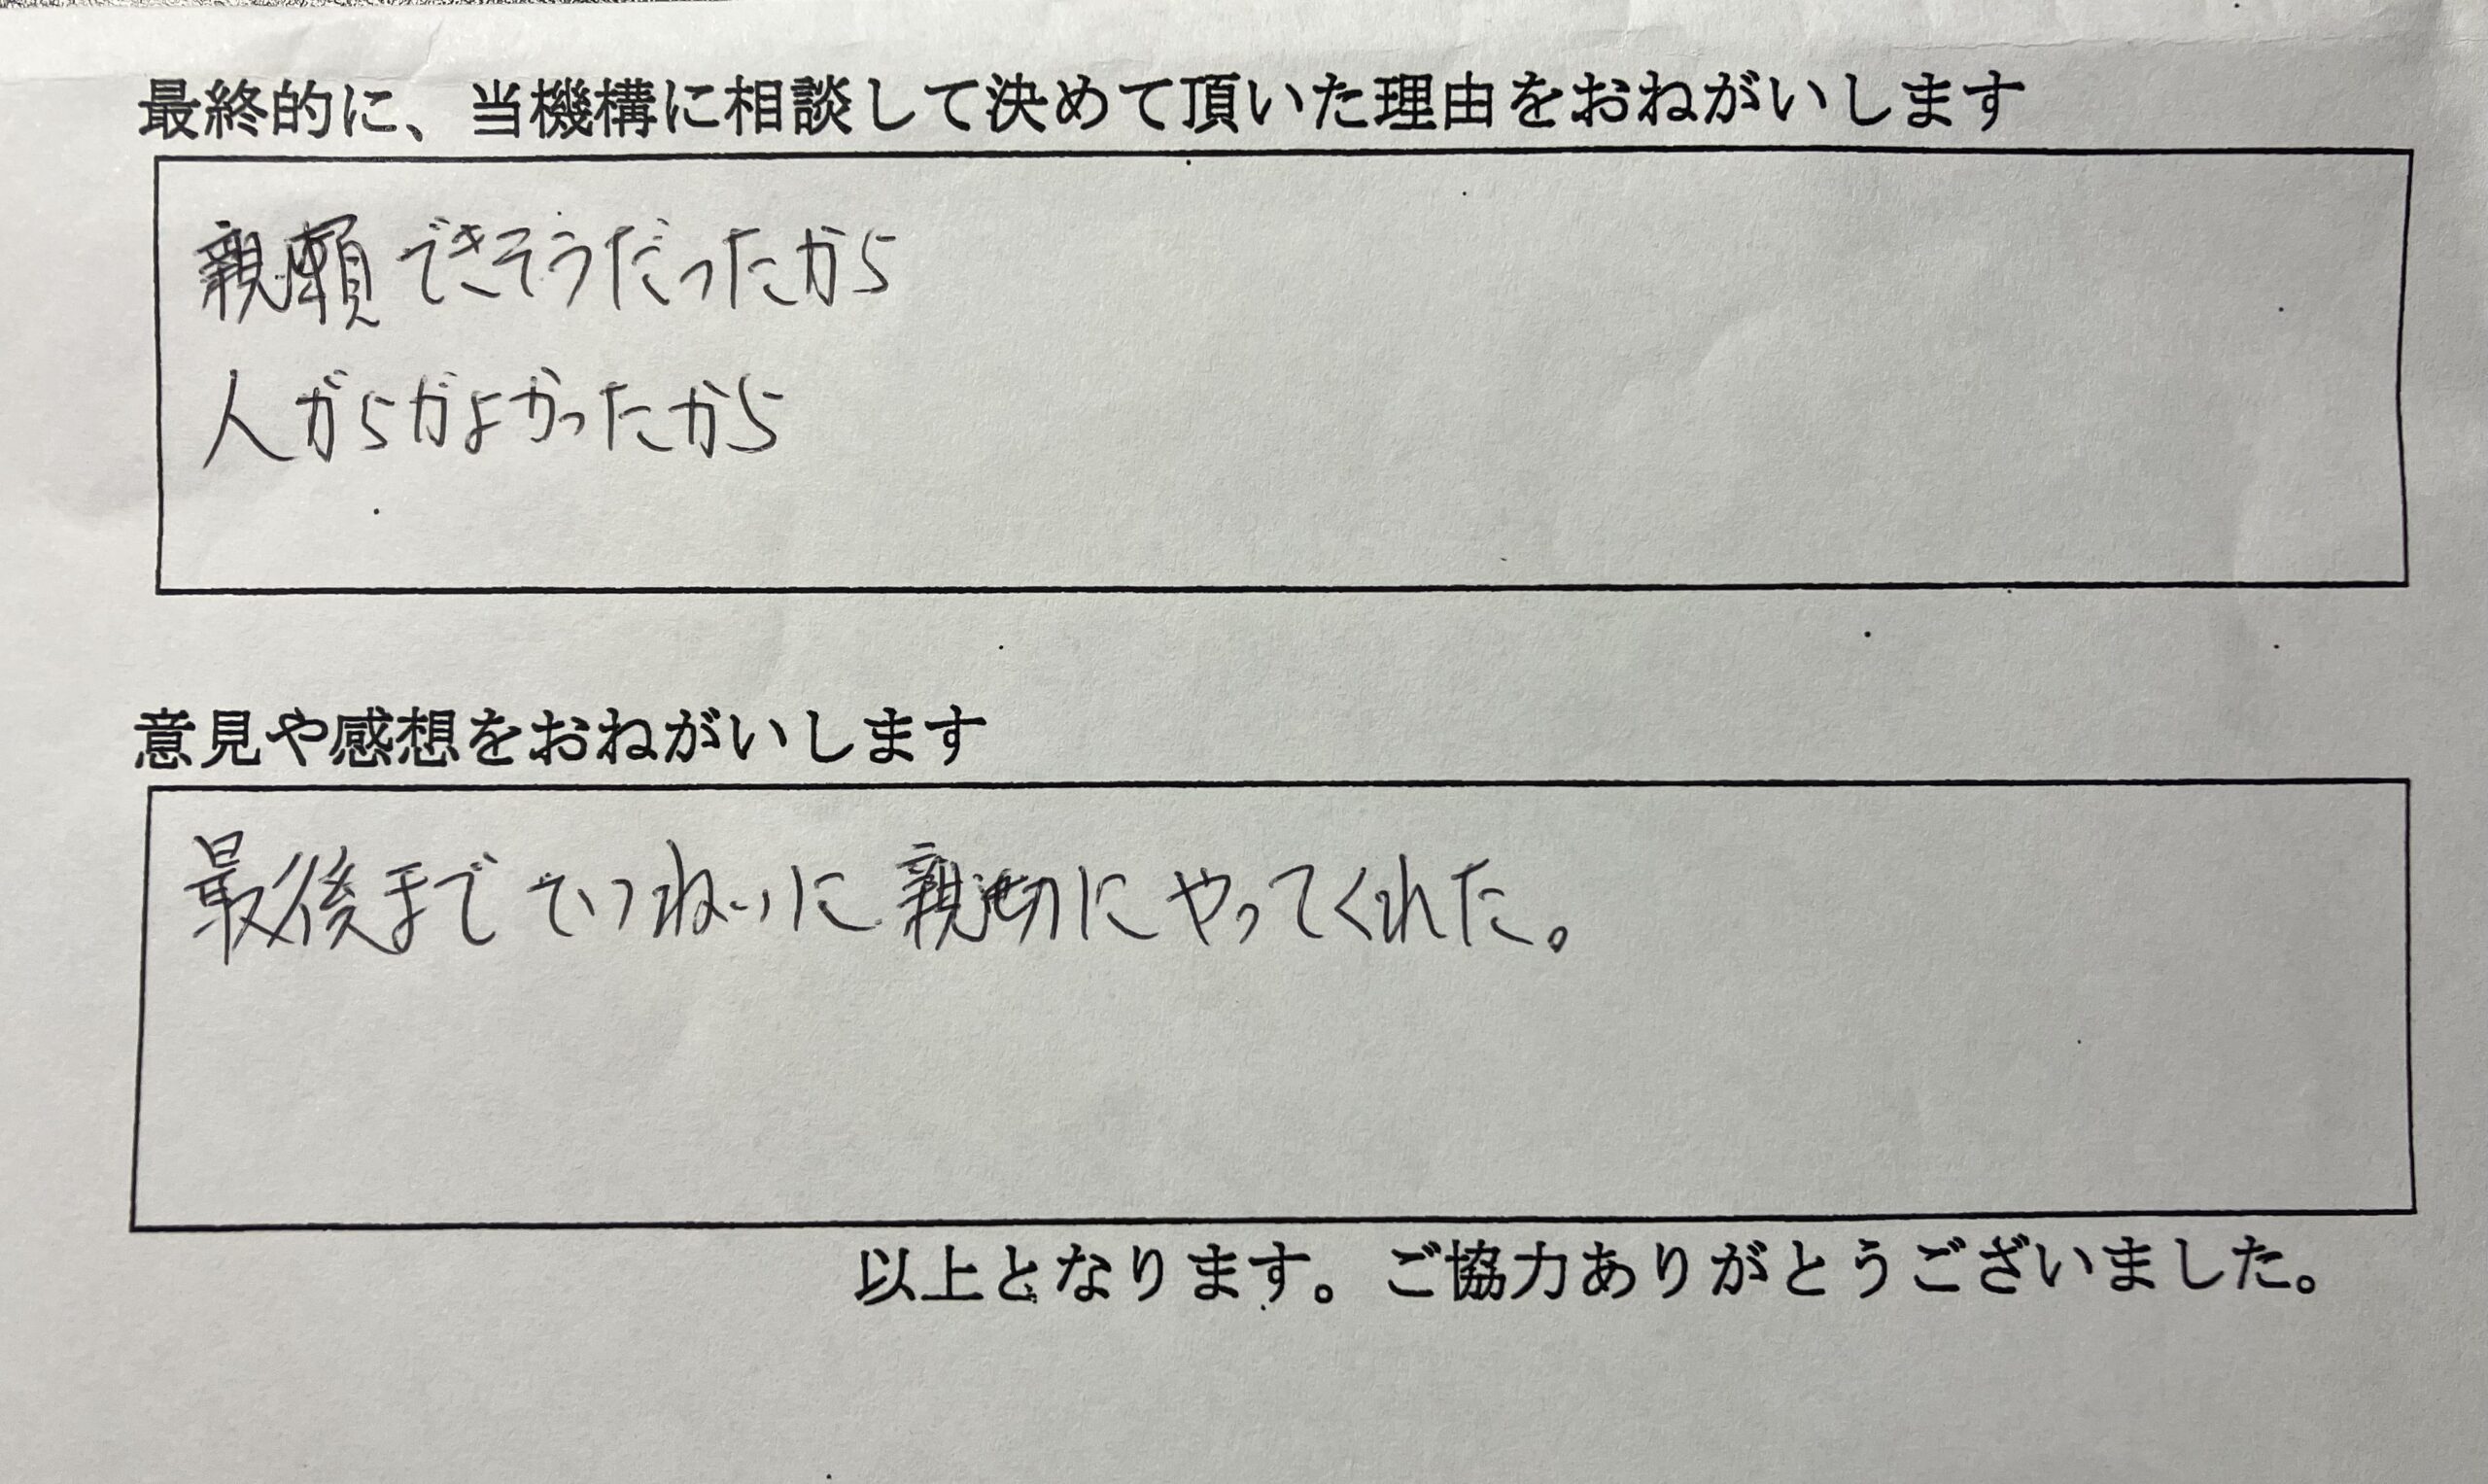 最終的に、当機構に相談して決めて頂いた理由をおねがいします
親頼できそうだったから
人がらがよかったから
意見や感想をおねがいします
最後までていねいに親切にやってくれた。
以上となります。ご協力ありがとうございました。